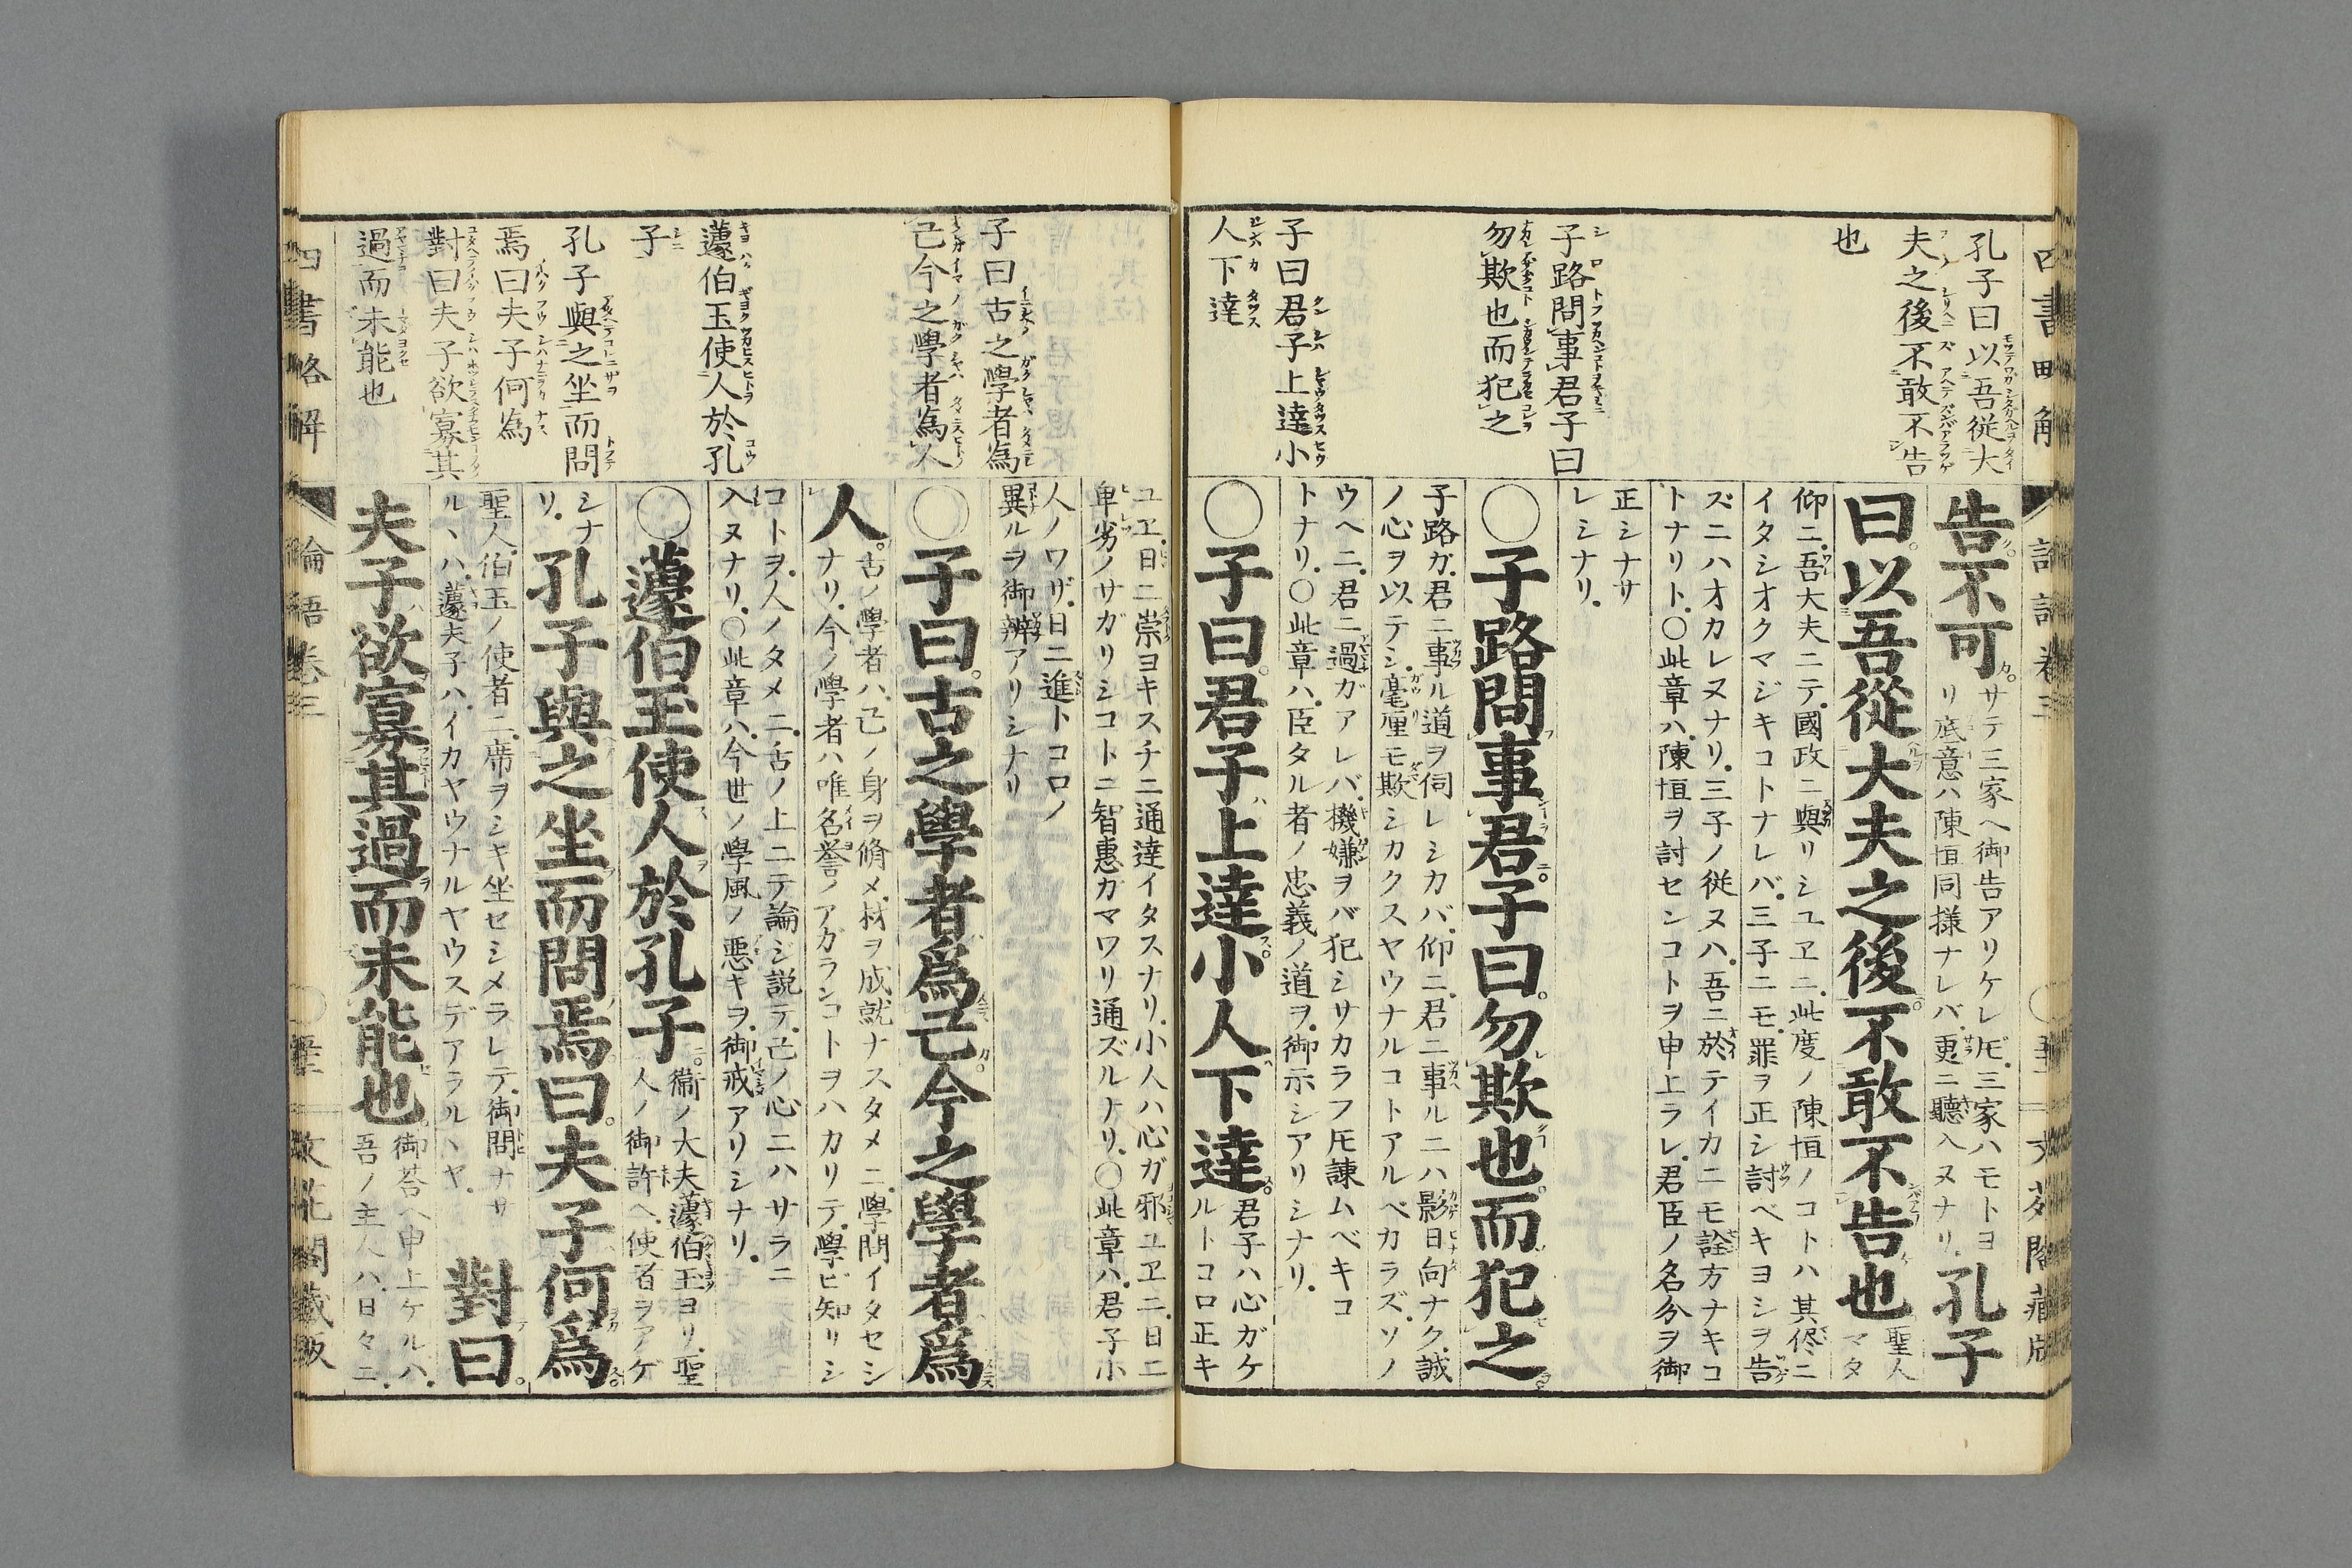 孔子曰以吾從大
夫之後不敢不告
也
子路問事君子曰
勿欺也而犯之
子曰君子上達小
人下達
告不可サテ三家ヘ御告アリケレ𪜈三家ハモトヨ
リ底意ハ陳恒同様ナレバ更ニ聽入ヌナリ孔子
曰以吾從大夫之後不敢不告也聖人
マタ
仰ニ吾大夫ニテ國政ニ與リシユヱニ此度ノ陳恒ノコトハ其侭ニ
イタシオクマジキコトナレバ三子ニモ罪ヲ正シ討ベキヨシヲ告
ズニハオカレヌナリ三子ノ從ヌハ吾ニ於テイカニモ詮方ナキコ
トナリト〇此章ハ陳恒ヲ討センコトヲ申上ラレ君臣ノ名分ヲ御
正シナサ
レシナリ
〇子路問事君子曰勿欺也而犯之
子路ガ君ニ事ル道ヲ伺レシカバ仰ニ君ニ事ルニハ影日向ナク誠
ノ心ヲ以テシ毫厘モ欺シカクスヤウナルコトアルベカラズソノ
ウヘニ君ニ過ガアレバ機嫌ヲバ犯シサカラフ𪜈諫ムベキコ
トナリ〇此章ハ臣タル者ノ忠義ノ道ヲ御示シアリシナリ
〇子曰君子上達小人下達君子ハ心ガケ
ルトコロ正キ
子曰古之學者為
己今之學者為人
蘧伯玉使人於孔
子
孔子與之坐而問
焉曰夫子何為
對曰夫子欲寡其
過而未能也
ユヱ日ニ崇ヨキスチニ通達イタスナリ小人ハ心ガ邪ユヱニ日ニ
卑劣ノサガリシコトニ智惠ガマワリ通ズルナリ〇此章ハ君子小
人ノワザ日ニ進トコロノ
異ルヲ御辨アリシナリ
〇子曰古之學者爲己今之學者爲
人古ノ學者ハ己ノ身ヲ脩メ材ヲ成就ナスタメニ學問イタセシ
ナリ今ノ學者ハ唯名誉ノアガランコトヲハカリテ學ビ知リシ
コトヲ人ノタメニ舌ノ上ニテ論ジ説テ己ノ心ニハサラニ
入ヌナリ〇此章ハ今世ノ學風ノ悪キヲ御戒アリシナリ
〇蘧伯玉使人於孔子衞ノ大夫蘧伯玉ヨリ聖
人ノ御許ヘ使者ヲアゲ
シナ
リ孔子與之坐而問焉曰夫子何爲
聖人伯玉ノ使者ニ席ヲシキ坐セシメラレテ御問ナサ
ルヽハ蘧夫子ハイカヤウナルヤウスデアラルヽヤ對曰
夫子欲寡其過而未能也御荅ヘ申上ケルハ
吾ノ主人ハ日々ニ
四書略解
論語卷三
文花閣藏版